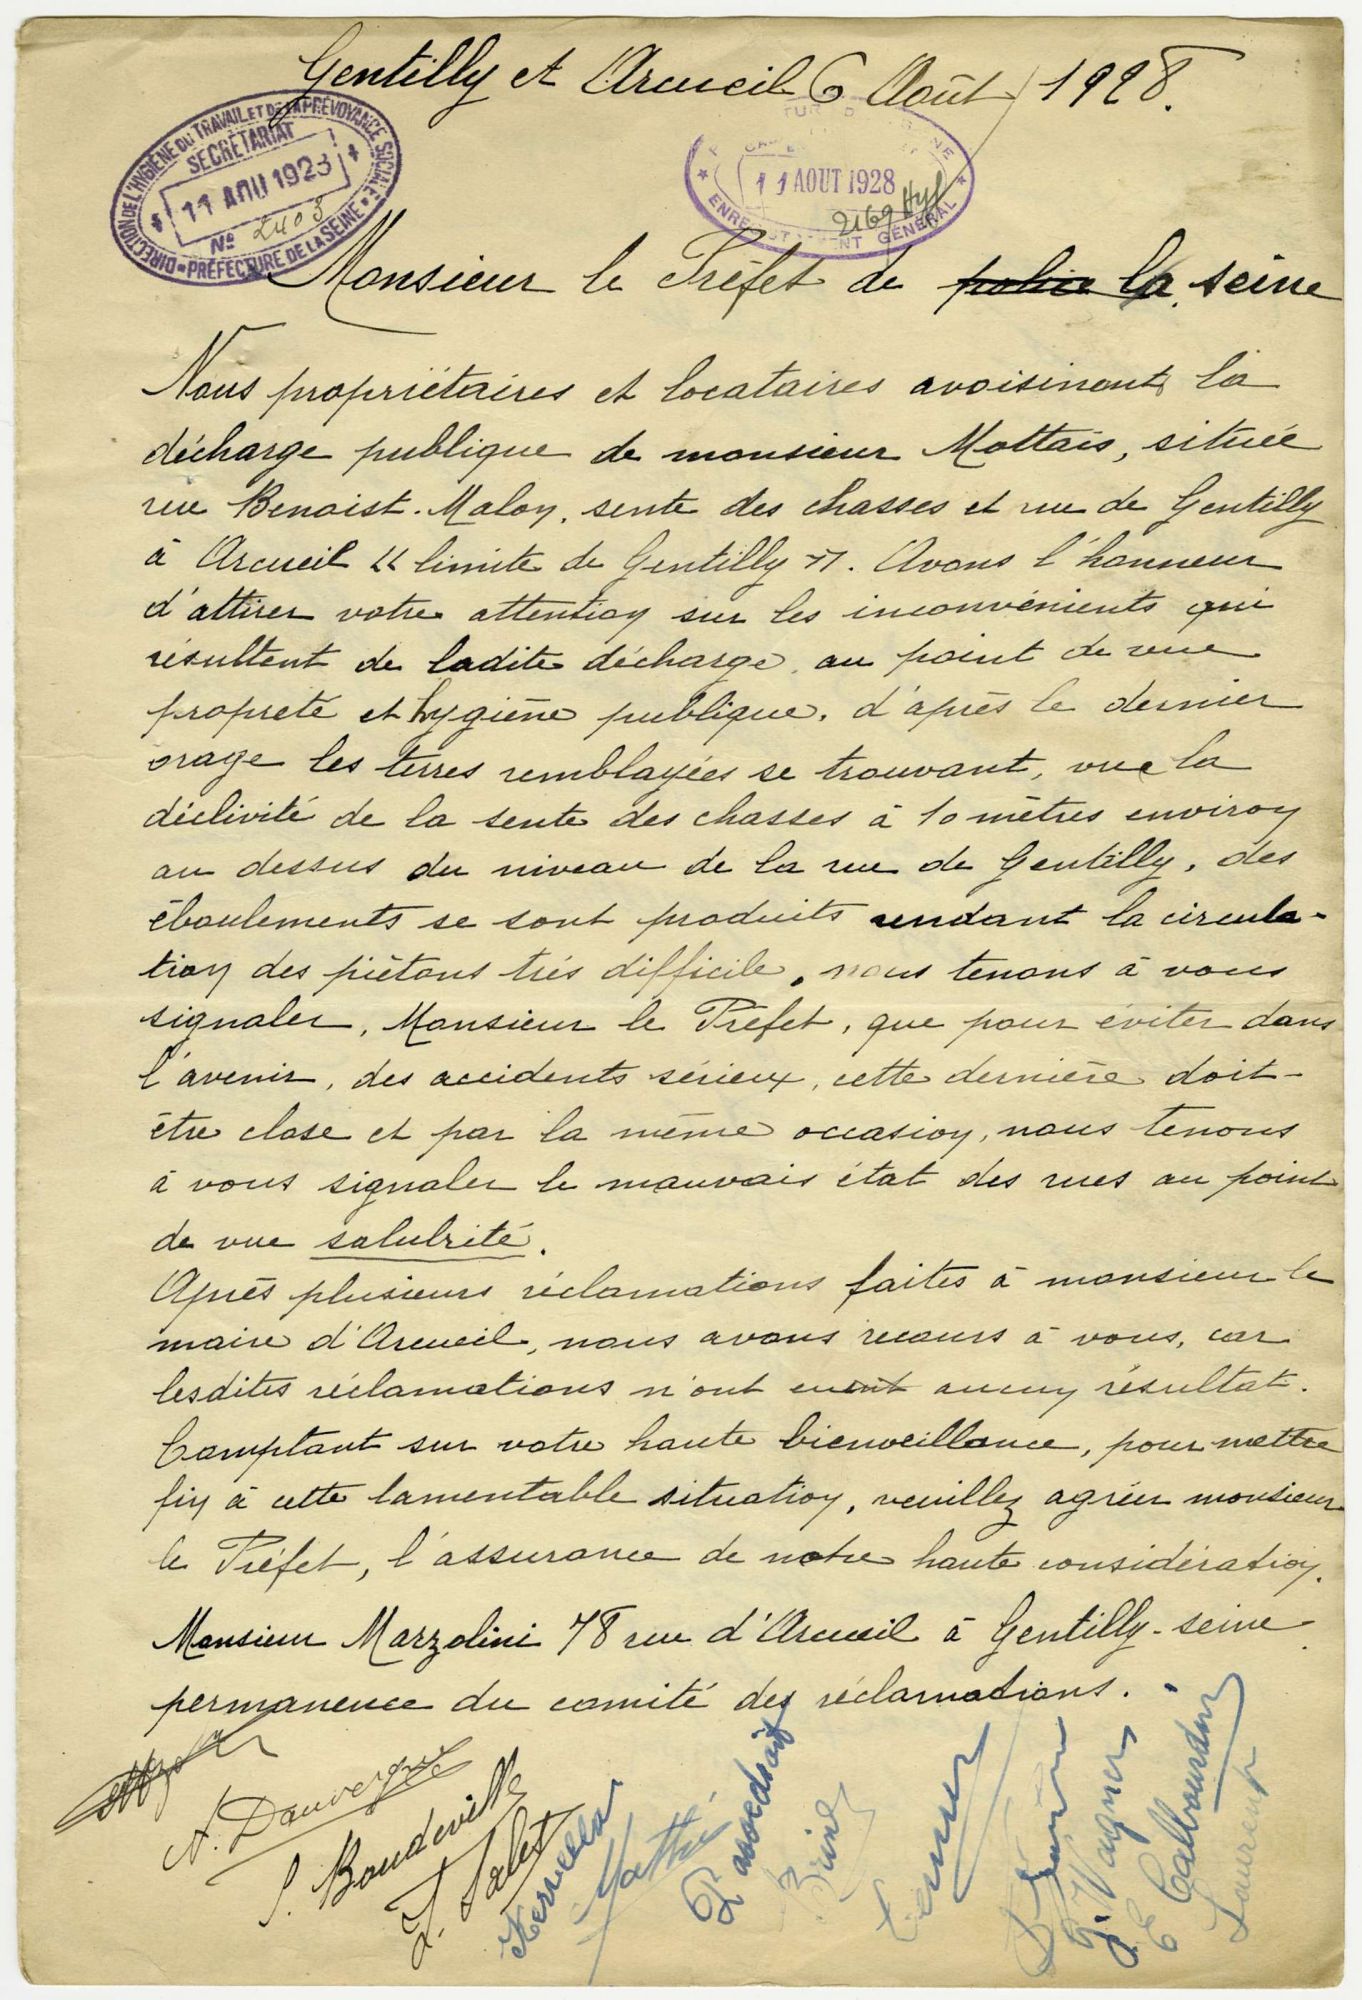 Gentilly et Arcueil 6 Août 1928.
DIRECTION DE L'HYGIÈNE DU TRAVAIL ET DE LA PRÉVOYANCE SOCIALE
SECRÉTARIAT
11 AOU 1928
N° 2403
PRÉFECTURE DE LA SEINE
11 AOUT 1928
2169 Hyg
ENREGISTREMENT GÉNÉRAL
Monsieur le Préfet de police la seine
Nous propriétaires et locataires avoisinent la
décharge publique de monsieur Mottais, située
rue Benoist-Malon, sente des chasses et rue de Gentilly
à Arcueil "limite de Gentilly". Avons l'honneur
d'attirer votre attention sur les inconvénients qui
résultent de ladite décharge, au point de vue
propreté et hygiène publique, d'après le dernier
orage les terres remblayées se trouvant, vue la
déclivité de la sente des chasses à 10 mètres environ
au dessus du niveau de la rue de Gentilly, des
éboulements se sont produits rendant la circula-
tion des piétons très difficile, nous tenons à vous
signaler, Monsieur le Préfet, que pour éviter dans
l'avenir, des accidents sérieux, cette dernière doit-
être close et par la même occasion, nous tenons
à vous signaler le mauvais état des rues au point
de vue salubrité.
Après plusieurs réclamations faites à monsieur le
maire d'Arcueil, nous avons recours à vous, car
lesdites réclamations n'ont eu aucun résultat.
Comptant sur votre haute bienveillance, pour mettre
fin à cette lamentable situation, veuillez agréer monsieur
le Préfet, l'assurance de notre haute considération.
Monsieur Marzolini 78 rue d'Arcueil à Gentilly-seine
permanence du comité des réclamations.
A. Dauvergne
S. Boudeville
Z. Salez
Kervella
Mathé
Brine
J. Wagner
Laurent